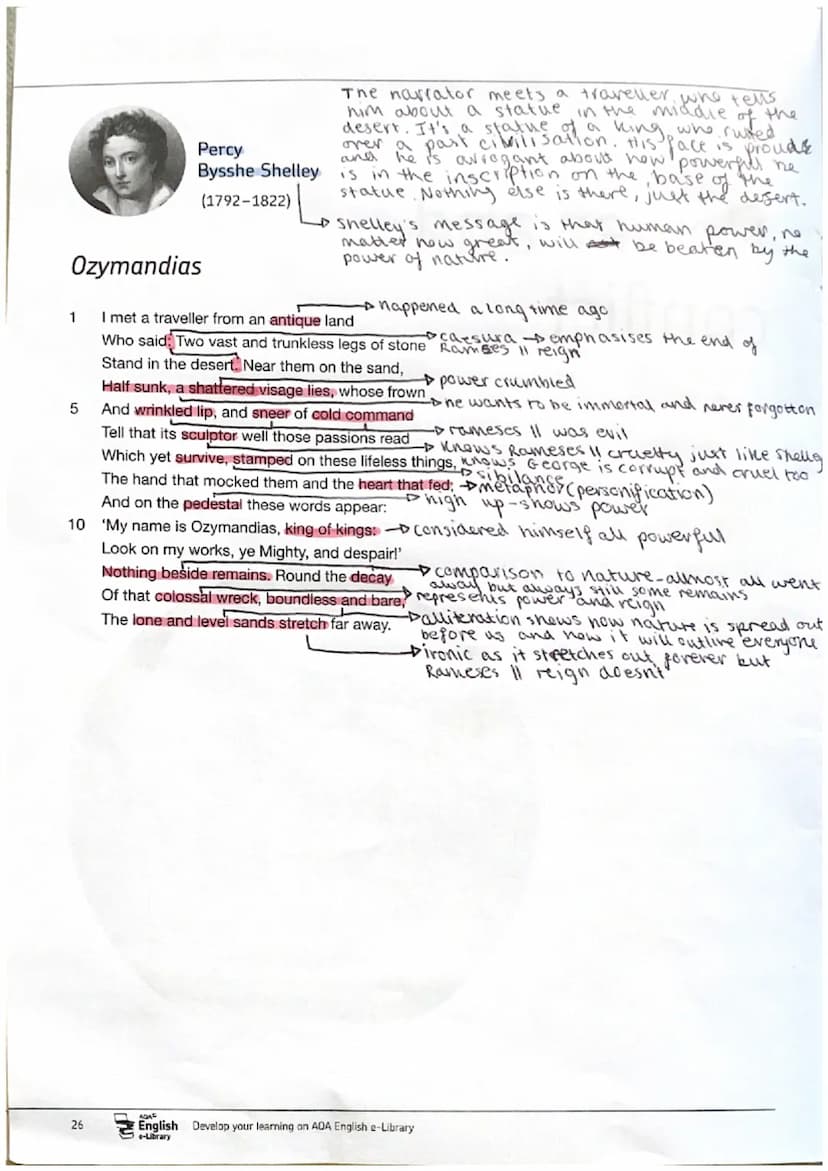 The narrator meets a traveller, who tells
him about a statue in the middle of the
desert. It's a statue of a king, who ruled
over a past civilisation. His face is proud
and he is arrogant about how powerful he
is in the inscription on the base of the
statue. Nothing else is there, just the desert.
Percy
Bysshe Shelley
(1792–1822)
Shelley's message is that human power, no
matter how great, will be beaten by the
power of nature.
Ozymandias
happened a long time ago
1 I met a traveller from an antique land
Who said: Two vast and trunkless legs of stone
caesura → emphasises the end of
Ramses II reign
Stand in the desert. Near them on the sand,
Half sunk, a shattered visage lies, whose frown
power crumbled
5 And wrinkled lip, and sneer of cold command
he wants to be immortal and never forgotten
Tell that its sculptor well those passions read
rameses II was evil
Which yet survive, stamped on these lifeless things,
knows Rameses II cruelty just like Shelley
knows George is corrupt and cruel too
sibilance
The hand that mocked them and the heart that fed;
→ metaphor (personification)
And on the pedestal these words appear:
high up - shows power
10 'My name is Ozymandias, king of kings:
→ considered himself all powerful
Look on my works, ye Mighty, and despair!'
Nothing beside remains. Round the decay
comparison to nature - almost all went
away but always still some remains
Of that colossal wreck, boundless and bare,
represents power and reign
The lone and level sands stretch far away.
alliteration shows how nature is spread out
before us and how it will outlive everyone
ironic as it stretches out forever but
Rameses II reign doesn't
26
AQA
English
e-Library
Develop your learning on AQA English e-Library